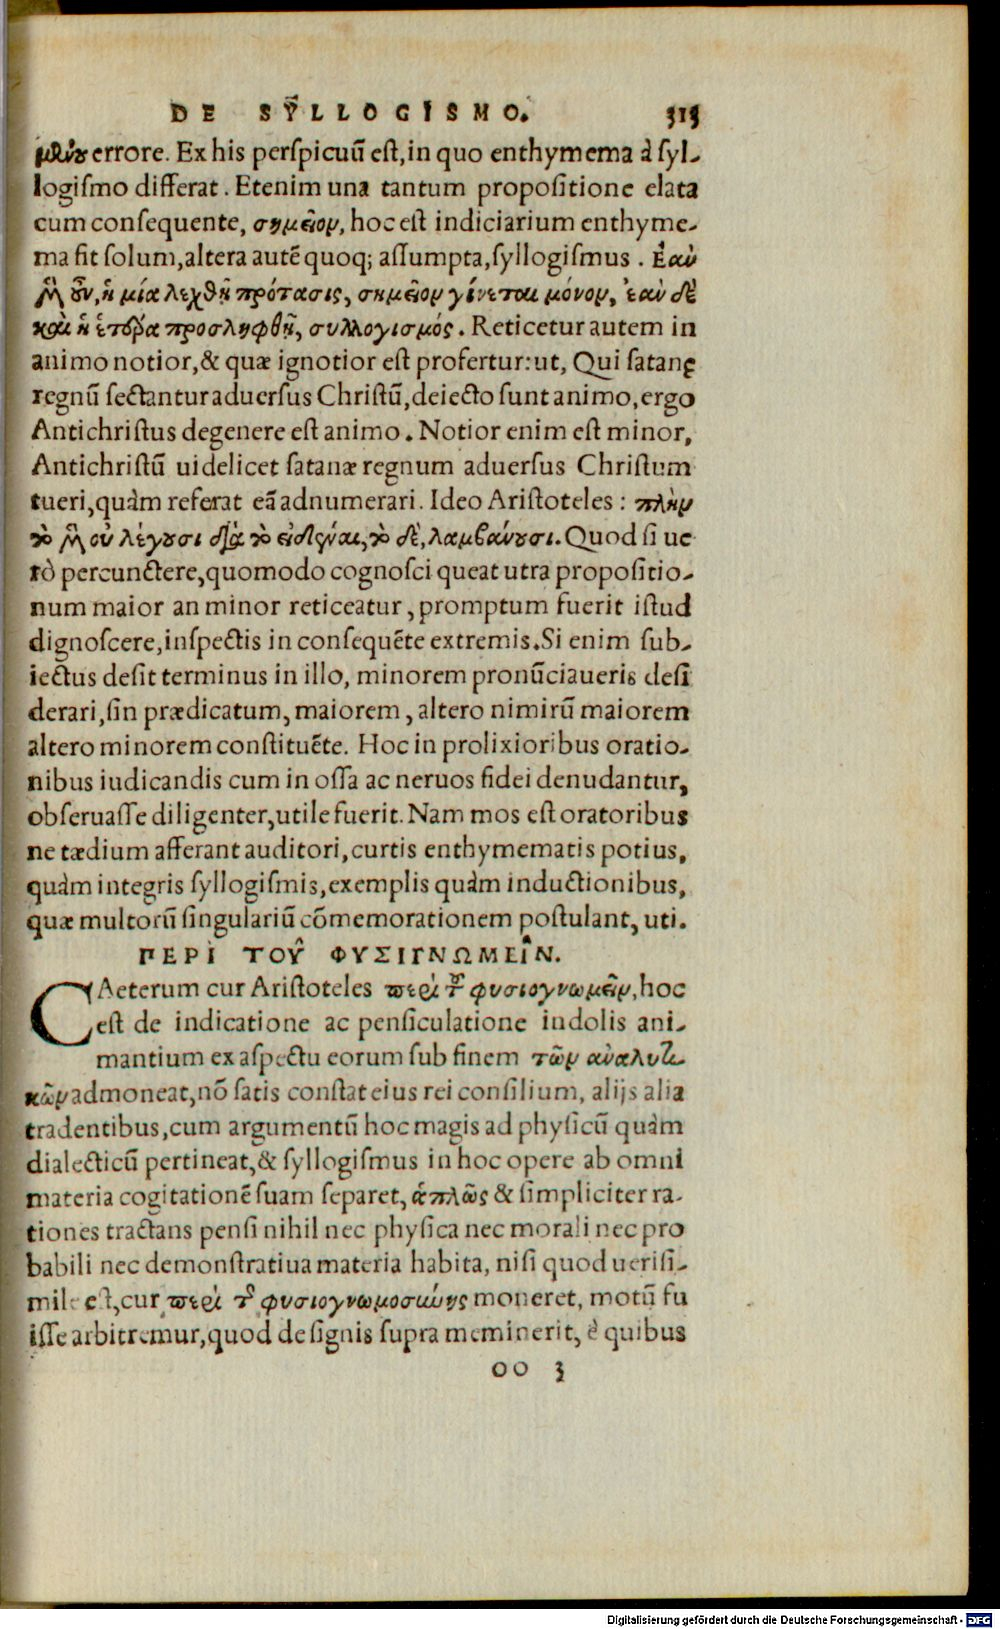 DE SYLLOGISMO. 313
errore. Ex his perspicuū est, in quo enthymema à syl-
logismo differat. Etenim una tantum propositione elata
cum consequente, σημεῖον, hoc est indiciarium enthyme-
ma fit solum, altera autē quoq; assumpta, syllogismus. Ἐὰν
μὲν οὖν, ἡ μία λεχθῇ πρότασις, σημεῖον γίνεται μόνον, ἐὰν δὲ
καὶ ἡ ἑτέρα προσληφθῇ, συλλογισμός. Reticetur autem in
animo notior, & quæ ignotior est profertur: ut, Qui satanę
regnū sectantur aduersus Christū, deiecto sunt animo, ergo
Antichristus degenere est animo. Notior enim est minor,
Antichristū uidelicet satanæ regnum aduersus Christum
tueri, quàm referat eā adnumerari. Ideo Aristoteles: πλὴν
τὸ μὲν οὐ λέγουσι διὰ τὸ εἰδέναι, τὸ δὲ, λαμβάνουσι. Quod si ue
rò percunctere, quomodo cognosci queat utra propositio-
num maior an minor reticeatur, promptum fuerit istud
dignoscere, inspectis in consequēte extremis. Si enim sub-
iectus desit terminus in illo, minorem pronūciaueris desi
derari, sin prædicatum, maiorem, altero nimirū maiorem
altero minorem constituēte. Hoc in prolixioribus oratio-
nibus iudicandis cum in ossa ac neruos fidei denudantur,
obseruasse diligenter, utile fuerit. Nam mos est oratoribus
ne tædium afferant auditori, curtis enthymematis potius,
quàm integris syllogismis, exemplis quàm inductionibus,
quæ multorū singulariū cōmemorationem postulant, uti.
ΠΕΡΙ ΤΟΥ͂ ΦΥΣΙΓΝΩΜΕΙ͂Ν.
CAeterum cur Aristoteles περὶ τοῦ φυσιογνωμεῖν, hoc
est de indicatione ac pensiculatione indolis ani-
mantium ex aspectu eorum sub finem τῶν ἀναλυτι
κῶν admoneat, nō satis constat eius rei consilium, alijs alia
tradentibus, cum argumentū hoc magis ad physicū quàm
dialecticū pertineat, & syllogismus in hoc opere ab omni
materia cogitationē suam separet, ἁπλῶς & simpliciter ra-
tiones tractans pensi nihil nec physica nec morali nec pro
babili nec demonstratiua materia habita, nisi quod uerisi-
mile est, cur περὶ τῆς φυσιογνωμοσύνης moneret, motū fu
isse arbitremur, quod de signis supra meminerit, è quibus
oo 3
Digitalisierung gefördert durch die Deutsche Forschungsgemeinschaft - DFG